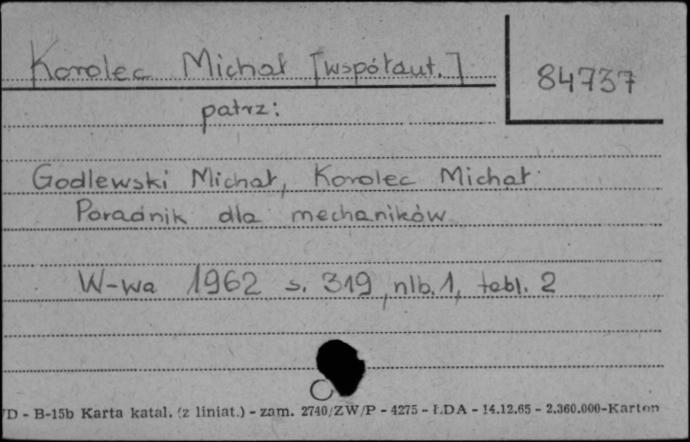 Korolec Michał [współaut.]
84737
patrz:
Godlewski Michał, Korolec Michał
Poradnik dla mechaników
W-wa 1962 s. 319, nlb. 1, tabl. 2
D - B-15b Karta katal. (z liniat.) - zam. 2740/ZW/P - 4275 - ŁDA - 14.12.65 - 2.360.000-Karton